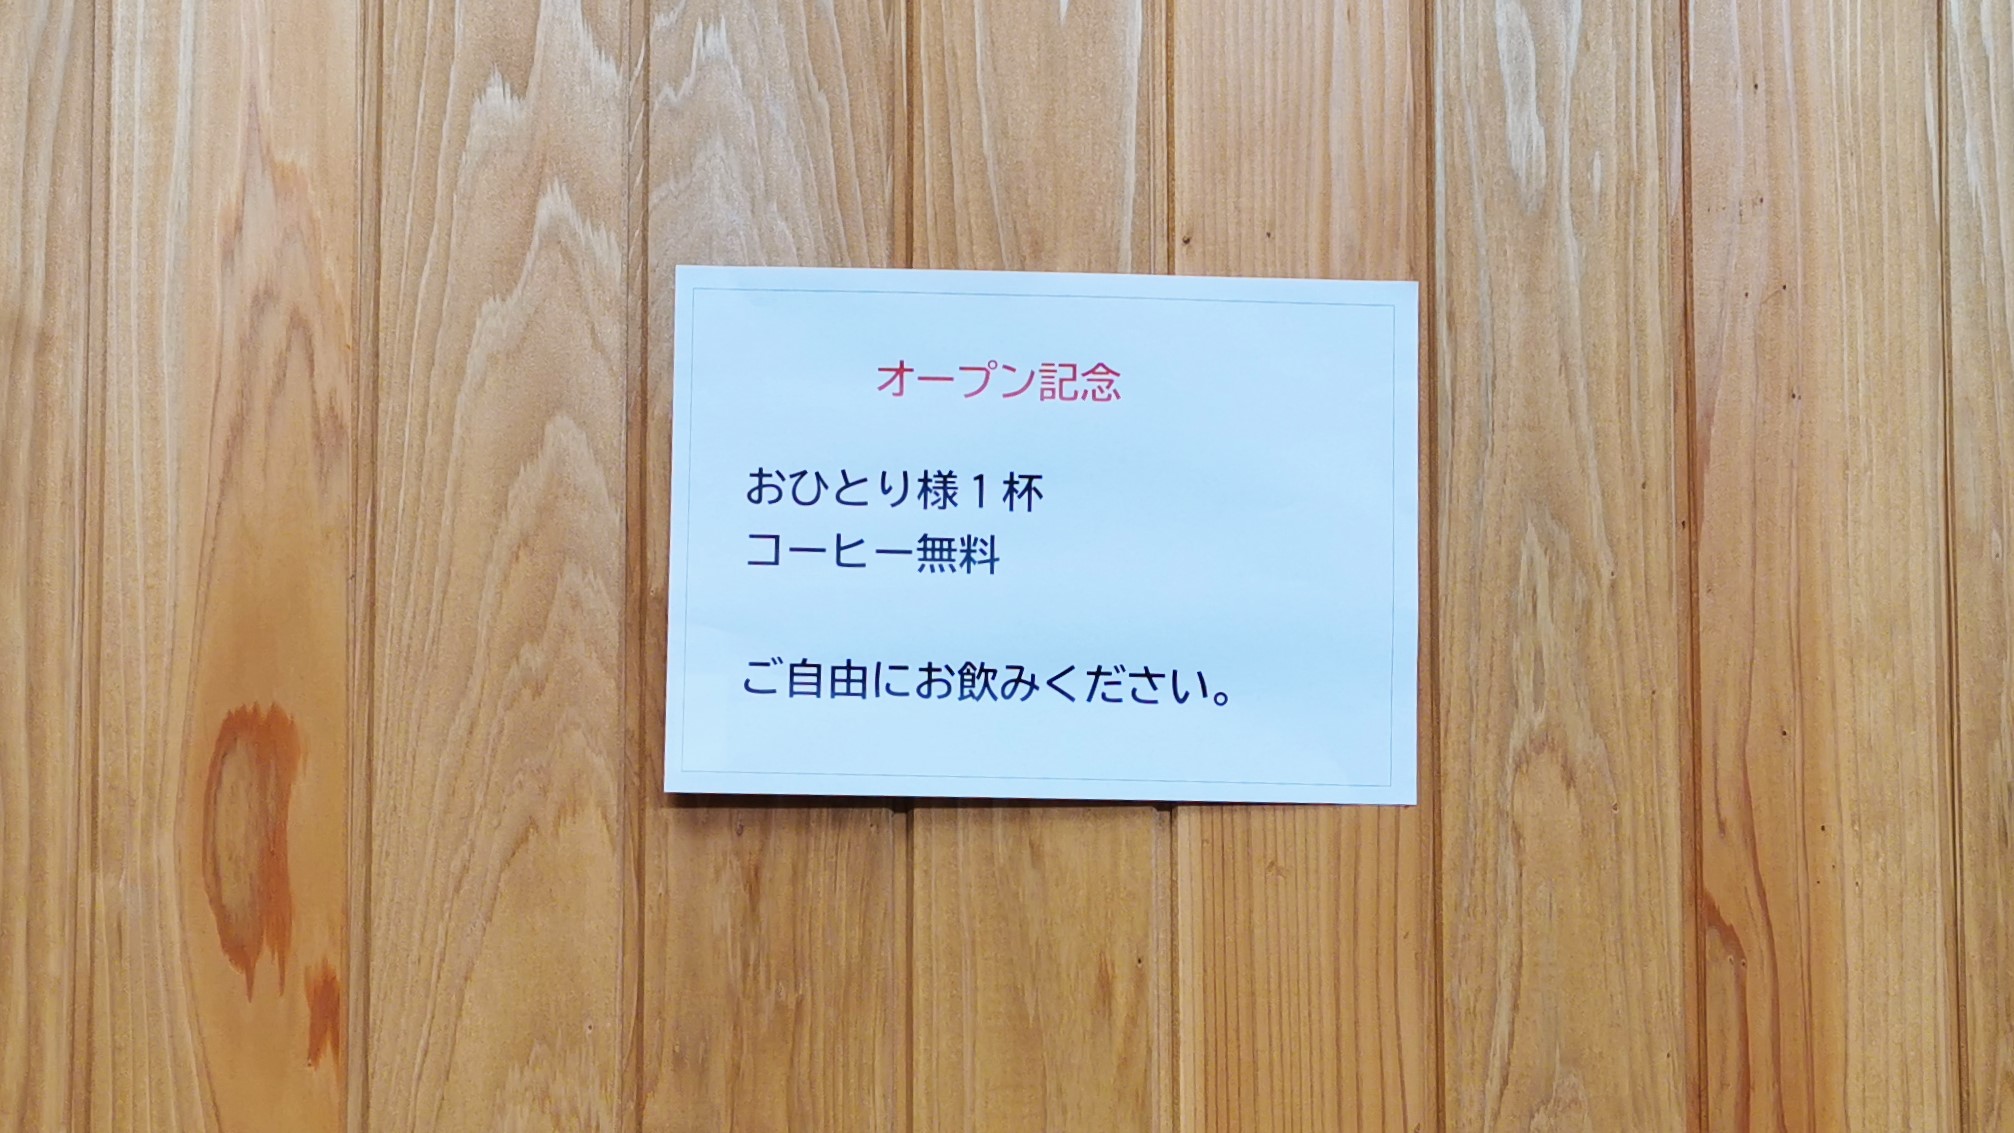 オープン記念
おひとり様１杯
コーヒー無料
ご自由にお飲みください。